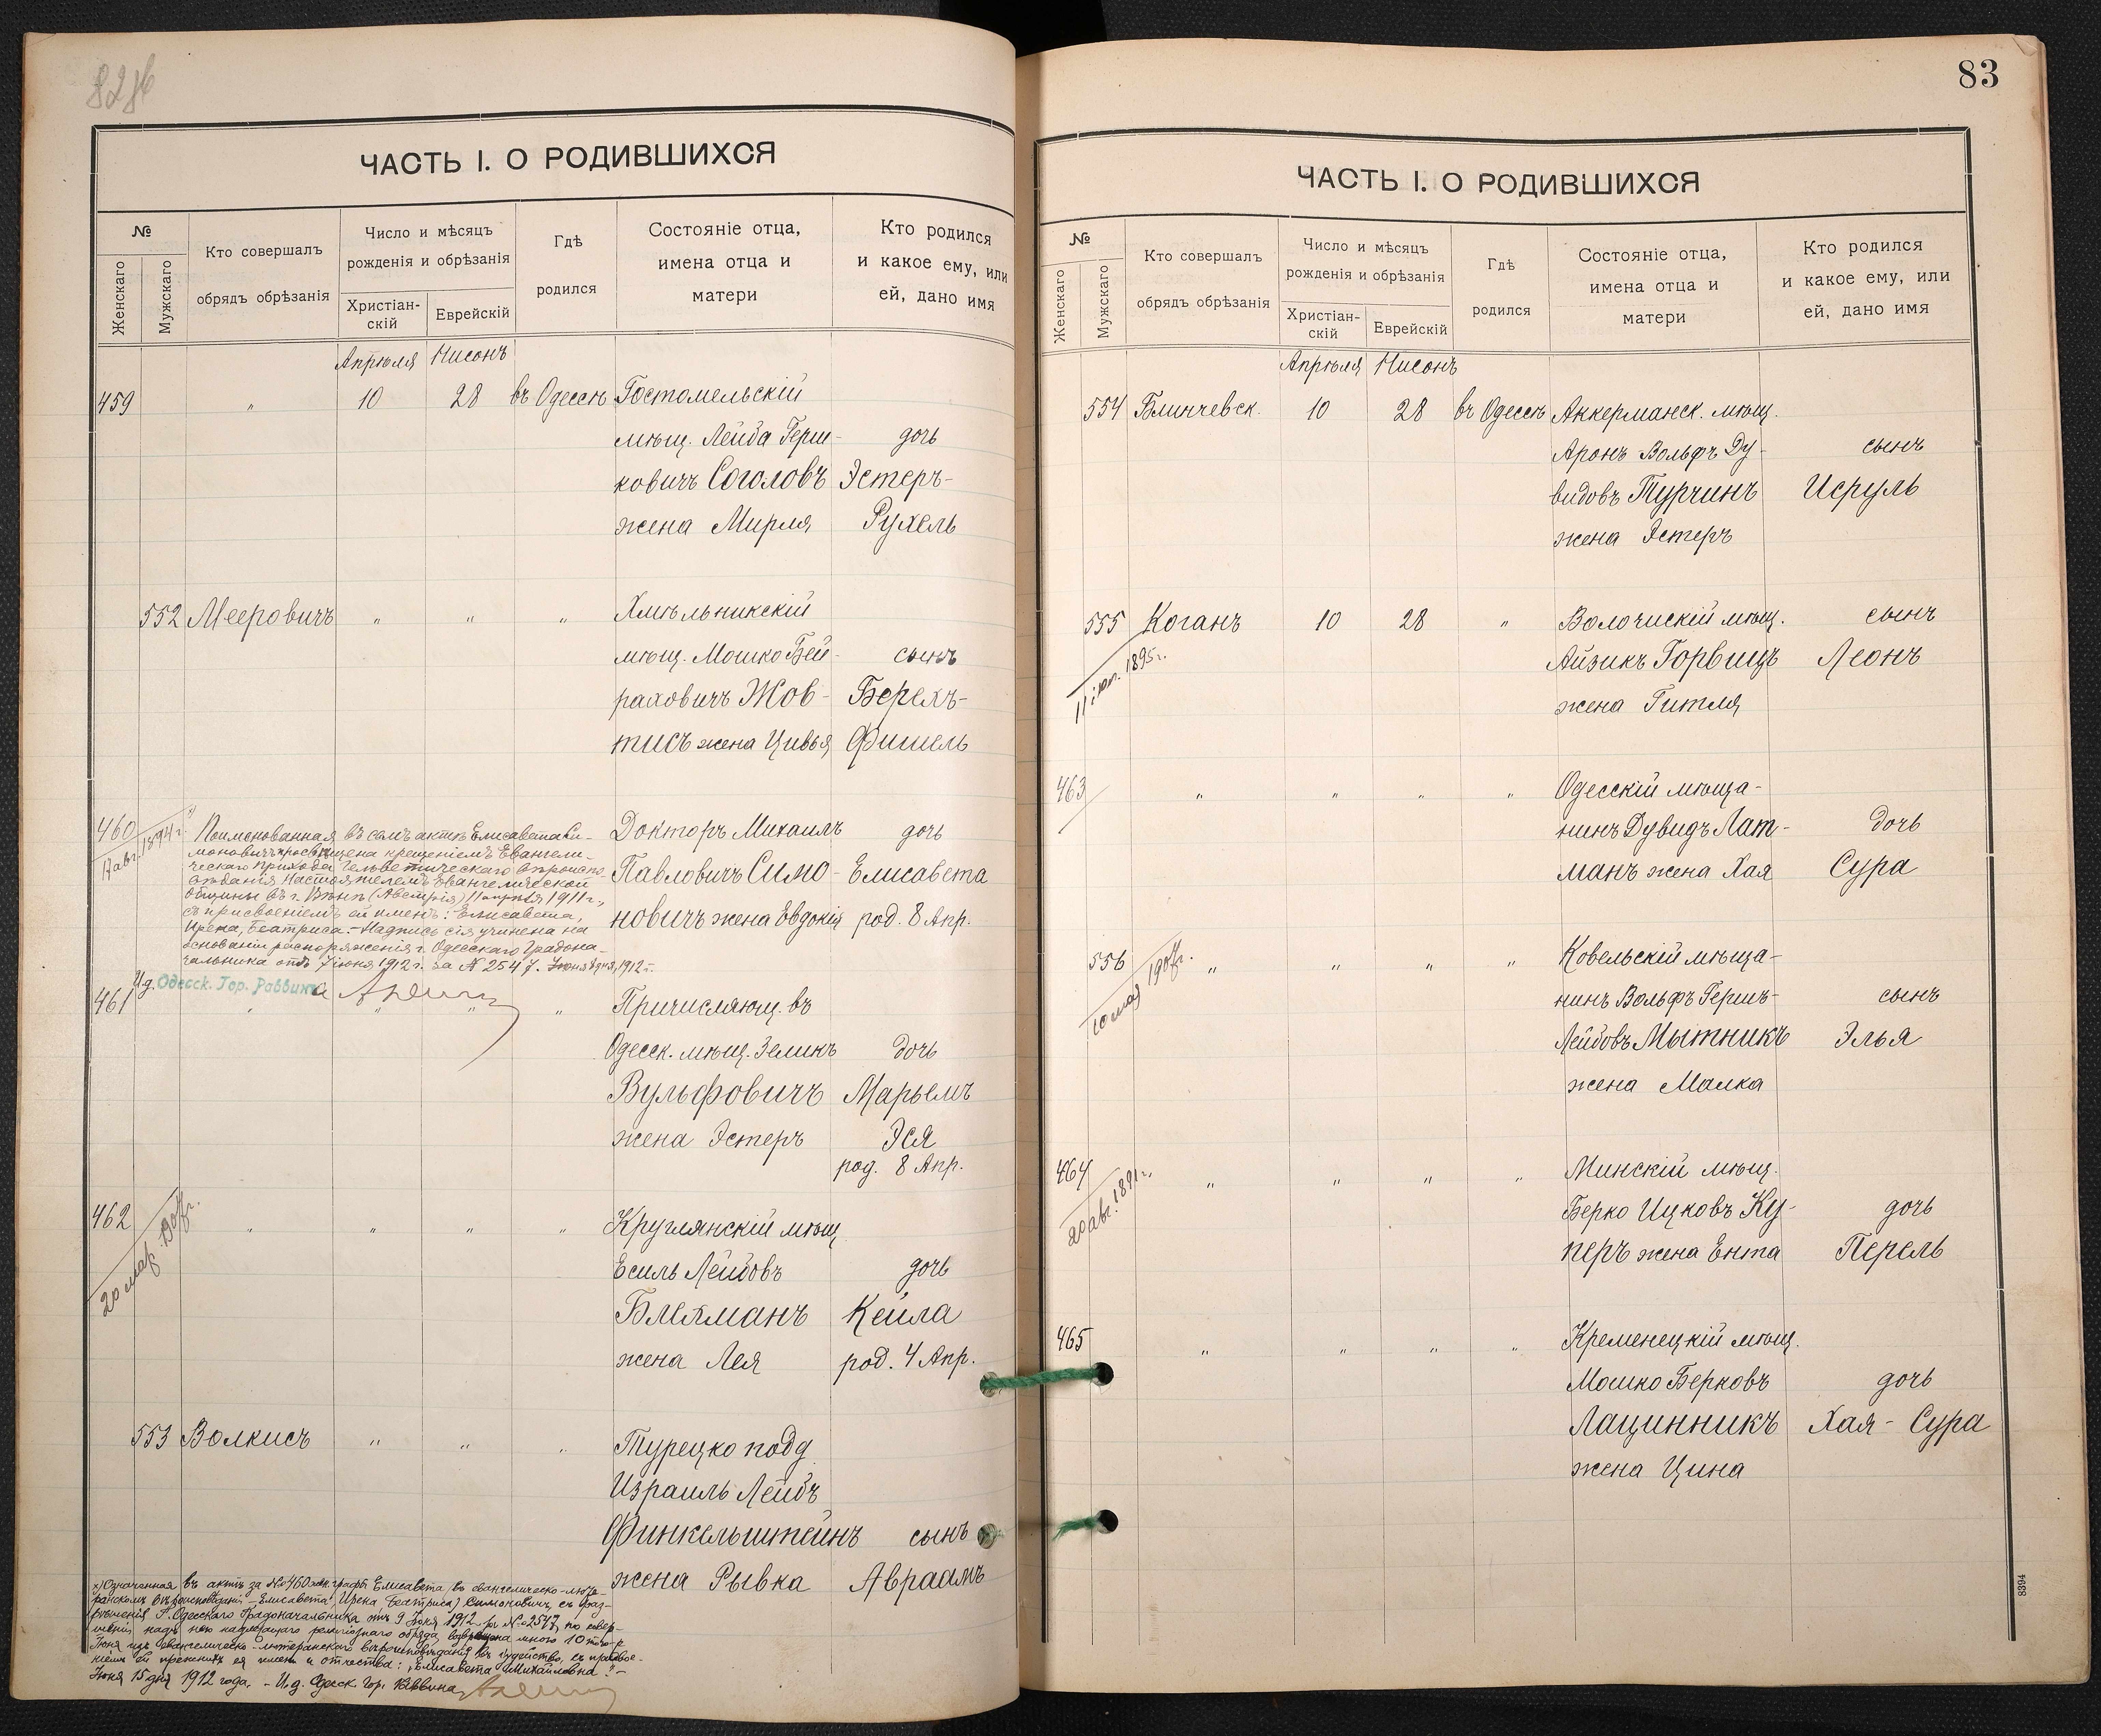 82 об
ЧАСТЬ I. О РОДИВШИХСЯ
№
Женскаго
Мужскаго
Кто совершалъ
обрядъ обрѣзанія
Число и мѣсяцъ
рожденія и обрѣзанія
Христіан-
скій
Еврейскій
Гдѣ
родился
Состояніе отца,
имена отца и
матери
Кто родился
и какое ему, или
ей, дано имя
Апрѣля Нисонъ
459 „ 10 28 въ Одессѣ Гостомельскій
мѣщ. Лейба Герш- дочь
ковичъ Соголовъ Эстеръ-
жена Мирля Рухель
552 Мееровичъ „ „ „ Хмѣльникскій
мѣщ. Мошко Бей- сынъ
раховичъ Жов- Берехъ-
тисъ жена Цивья Фишель
460 Докторъ Михаилъ дочь
Павловичъ Симо- Елисавета
новичъ жена Евдокія род. 8 Апр.
1894 г.
Поименованная въ семъ актѣ Елисавета Си-
моновичъ просвѣщена крещеніемъ Евангели-
ческаго прихода Гельветическаго вѣроиспо-
вѣданія настоятелемъ Евангелической
общины въ г. Вѣнѣ (Австрія) 11 апрѣля 1911 г.,
съ присвоеніемъ ей именъ: Елисавета,
Ирена, Беатриса. – Надпись сія учинена на
основаніи распоряженія г. Одесскаго Градона-
чальника отъ 7 іюня 1912 г. за № 2547. Іюня 1912 г.
И.д. Одесск. Гор. Раввина
461 „ „ „ „ Причисляющ. въ
Одесск. мѣщ. Зеликъ дочь
Вульфовичъ Марьемъ
жена Эстеръ Эся
род. 8 Апр.
462 „ „ „ „ Круглянскій мѣщ.
20 мар.
Есиль Лейбовъ дочь
Блехманъ Кейла
жена Лея род. 4 Апр.
553 Волкисъ „ „ „ Турецко подд.
Израиль Лейбъ
Финкельштейнъ сынъ
жена Рывка Авраамъ
х) Означенная въ актѣ за № 460 жен. графы Елисавета, въ евангелическо-люте-
ранскомъ вѣроисповѣданіи – Елисавета Ирена Беатриса Симоновичъ, съ раз-
рѣшенія Г. Одесскаго Градоначальника отъ 9 Іюня 1912 г. за № 2547, по совер-
шеніи надъ нею надлежащаго религіознаго обряда, возвращена мною 10 того-же
Іюня изъ евангелическо-лютеранскаго вѣроисповѣданія въ іудейство, съ присвое-
ніемъ ей прежнихъ ея имени и отчества: „Елисавета Михайловна“. –
Іюня 15 дня 1912 года. – И.д. Одесск. Гор. Раввина
83
ЧАСТЬ I. О РОДИВШИХСЯ
№
Женскаго
Мужскаго
Кто совершалъ
обрядъ обрѣзанія
Число и мѣсяцъ
рожденія и обрѣзанія
Христіан-
скій
Еврейскій
Гдѣ
родился
Состояніе отца,
имена отца и
матери
Кто родился
и какое ему, или
ей, дано имя
Апрѣля Нисонъ
554 Блинчевск. 10 28 въ Одессѣ Аккерманск. мѣщ.
Аронъ Вольфъ Ду- сынъ
видовъ Турчинъ Исруль
жена Эстеръ
555 Коганъ 10 28 „ Волочискій мѣщ. сынъ
1895 г.
Айзикъ Горвицъ Леонъ
жена Гитля
463 „ „ „ „ Одесскій мѣща-
нинъ Дувидъ Лат- дочь
манъ жена Хая Сура
556 „ „ „ „ Ковельскій мѣща-
10 мая
нинъ Вольфъ Гершъ- сынъ
Лейбовъ Мытникъ Элья
жена Малка
464 „ „ „ „ Минскій мѣщ.
20 авг. 1891 г.
Берко Ицковъ Ку- дочь
перъ жена Ента Перель
465 „ „ „ „ Кременецкій мѣщ.
Мошко Берковъ дочь
Лацинникъ Хая- Сура
жена Цина
8394